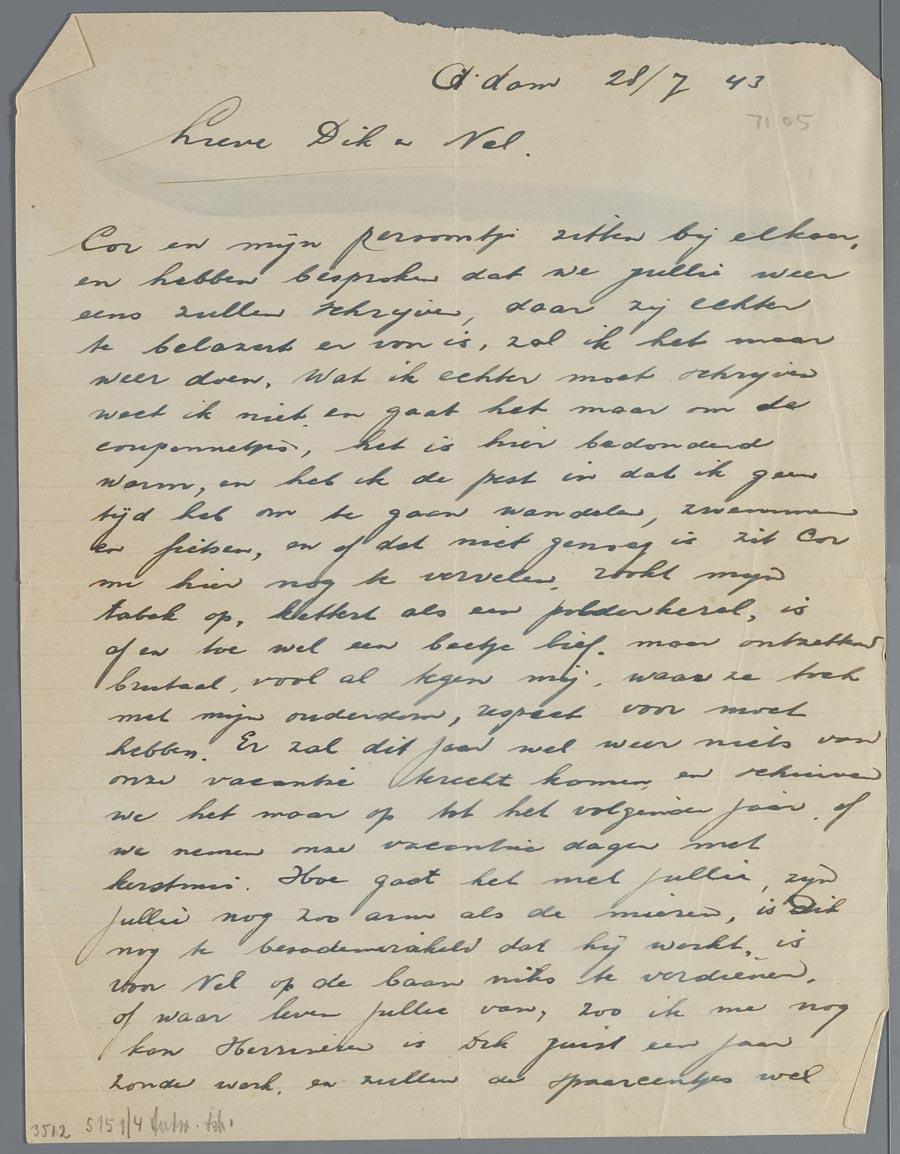 A'dam 28/7 43
7105
Lieve Dik en Nel.
Cor en mijn persoontje zitten bij elkaar,
en hebben besproken dat we jullie weer
eens zullen schrijven, daar zij echter
te belazert er van is, zal ik het maar
weer doen. Wat ik echter moet schrijven
weet ik niet en gaat het maar om de
couponnetjes, het is hier bedonderd
warm, en heb ik de pest in dat ik geen
tijd heb om te gaan wandelen, zwemmen
en fietsen, en of dat niet genoeg is zit Cor
me hier nog te vervelen, rookt mijn
tabak op, kettert als een polderkerel, is
af en toe wel een beetje lief, maar ontzettend
brutaal, vooral tegen mij, waar ze toch
met mijn ouderdom, respect voor moet
hebben. Er zal dit jaar wel weer niets van
onze vacantie terecht komen en schuiven
we het maar op tot het volgende jaar, of
we nemen onze vacantie dagen met
kerstmis. Hoe gaat het met jullie, zijn
jullie nog zoo arm als de mieren, is Dik
nog te besodemieterd dat hij werkt, is
voor Nel op de baan niks te verdienen,
of waar leven jullie van, zoo ik me nog
kan Herrineren is Dik juist een jaar
zonder werk, en zullen de spaarcentjes wel
3512 5151/4 Antw. sch.